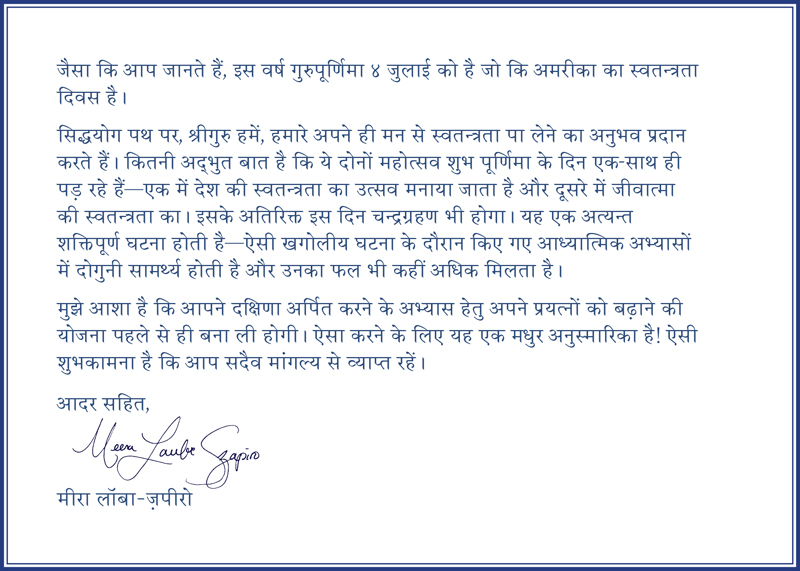 जैसा कि आप जानते हैं, इस वर्ष गुरुपूर्णिमा ४ जुलाई को है जो कि अमरीका का स्वतन्त्रता
दिवस है।
सिद्धयोग पथ पर, श्रीगुरु हमें, हमारे अपने ही मन से स्वतन्त्रता पा लेने का अनुभव प्रदान
करते हैं। कितनी अद्‌भुत बात है कि ये दोनों महोत्सव शुभ पूर्णिमा के दिन एक-साथ ही
पड़ रहे हैं—एक में देश की स्वतन्त्रता का उत्सव मनाया जाता है और दूसरे में जीवात्मा
की स्वतन्त्रता का। इसके अतिरिक्त इस दिन चन्द्रग्रहण भी होगा। यह एक अत्यन्त
शक्तिपूर्ण घटना होती है—ऐसी खगोलीय घटना के दौरान किए गए आध्यात्मिक अभ्यासों
में दोगुनी सामर्थ्य होती है और उनका फल भी कहीं अधिक मिलता है।
मुझे आशा है कि आपने दक्षिणा अर्पित करने के अभ्यास हेतु अपने प्रयत्नों को बढ़ाने की
योजना पहले से ही बना ली होगी। ऐसा करने के लिए यह एक मधुर अनुस्मारिका है! ऐसी
शुभकामना है कि आप सदैव मांगल्य से व्याप्त रहें।
आदर सहित,
Meera Laube Szapiro
मीरा लॉबा-ज़पीरो